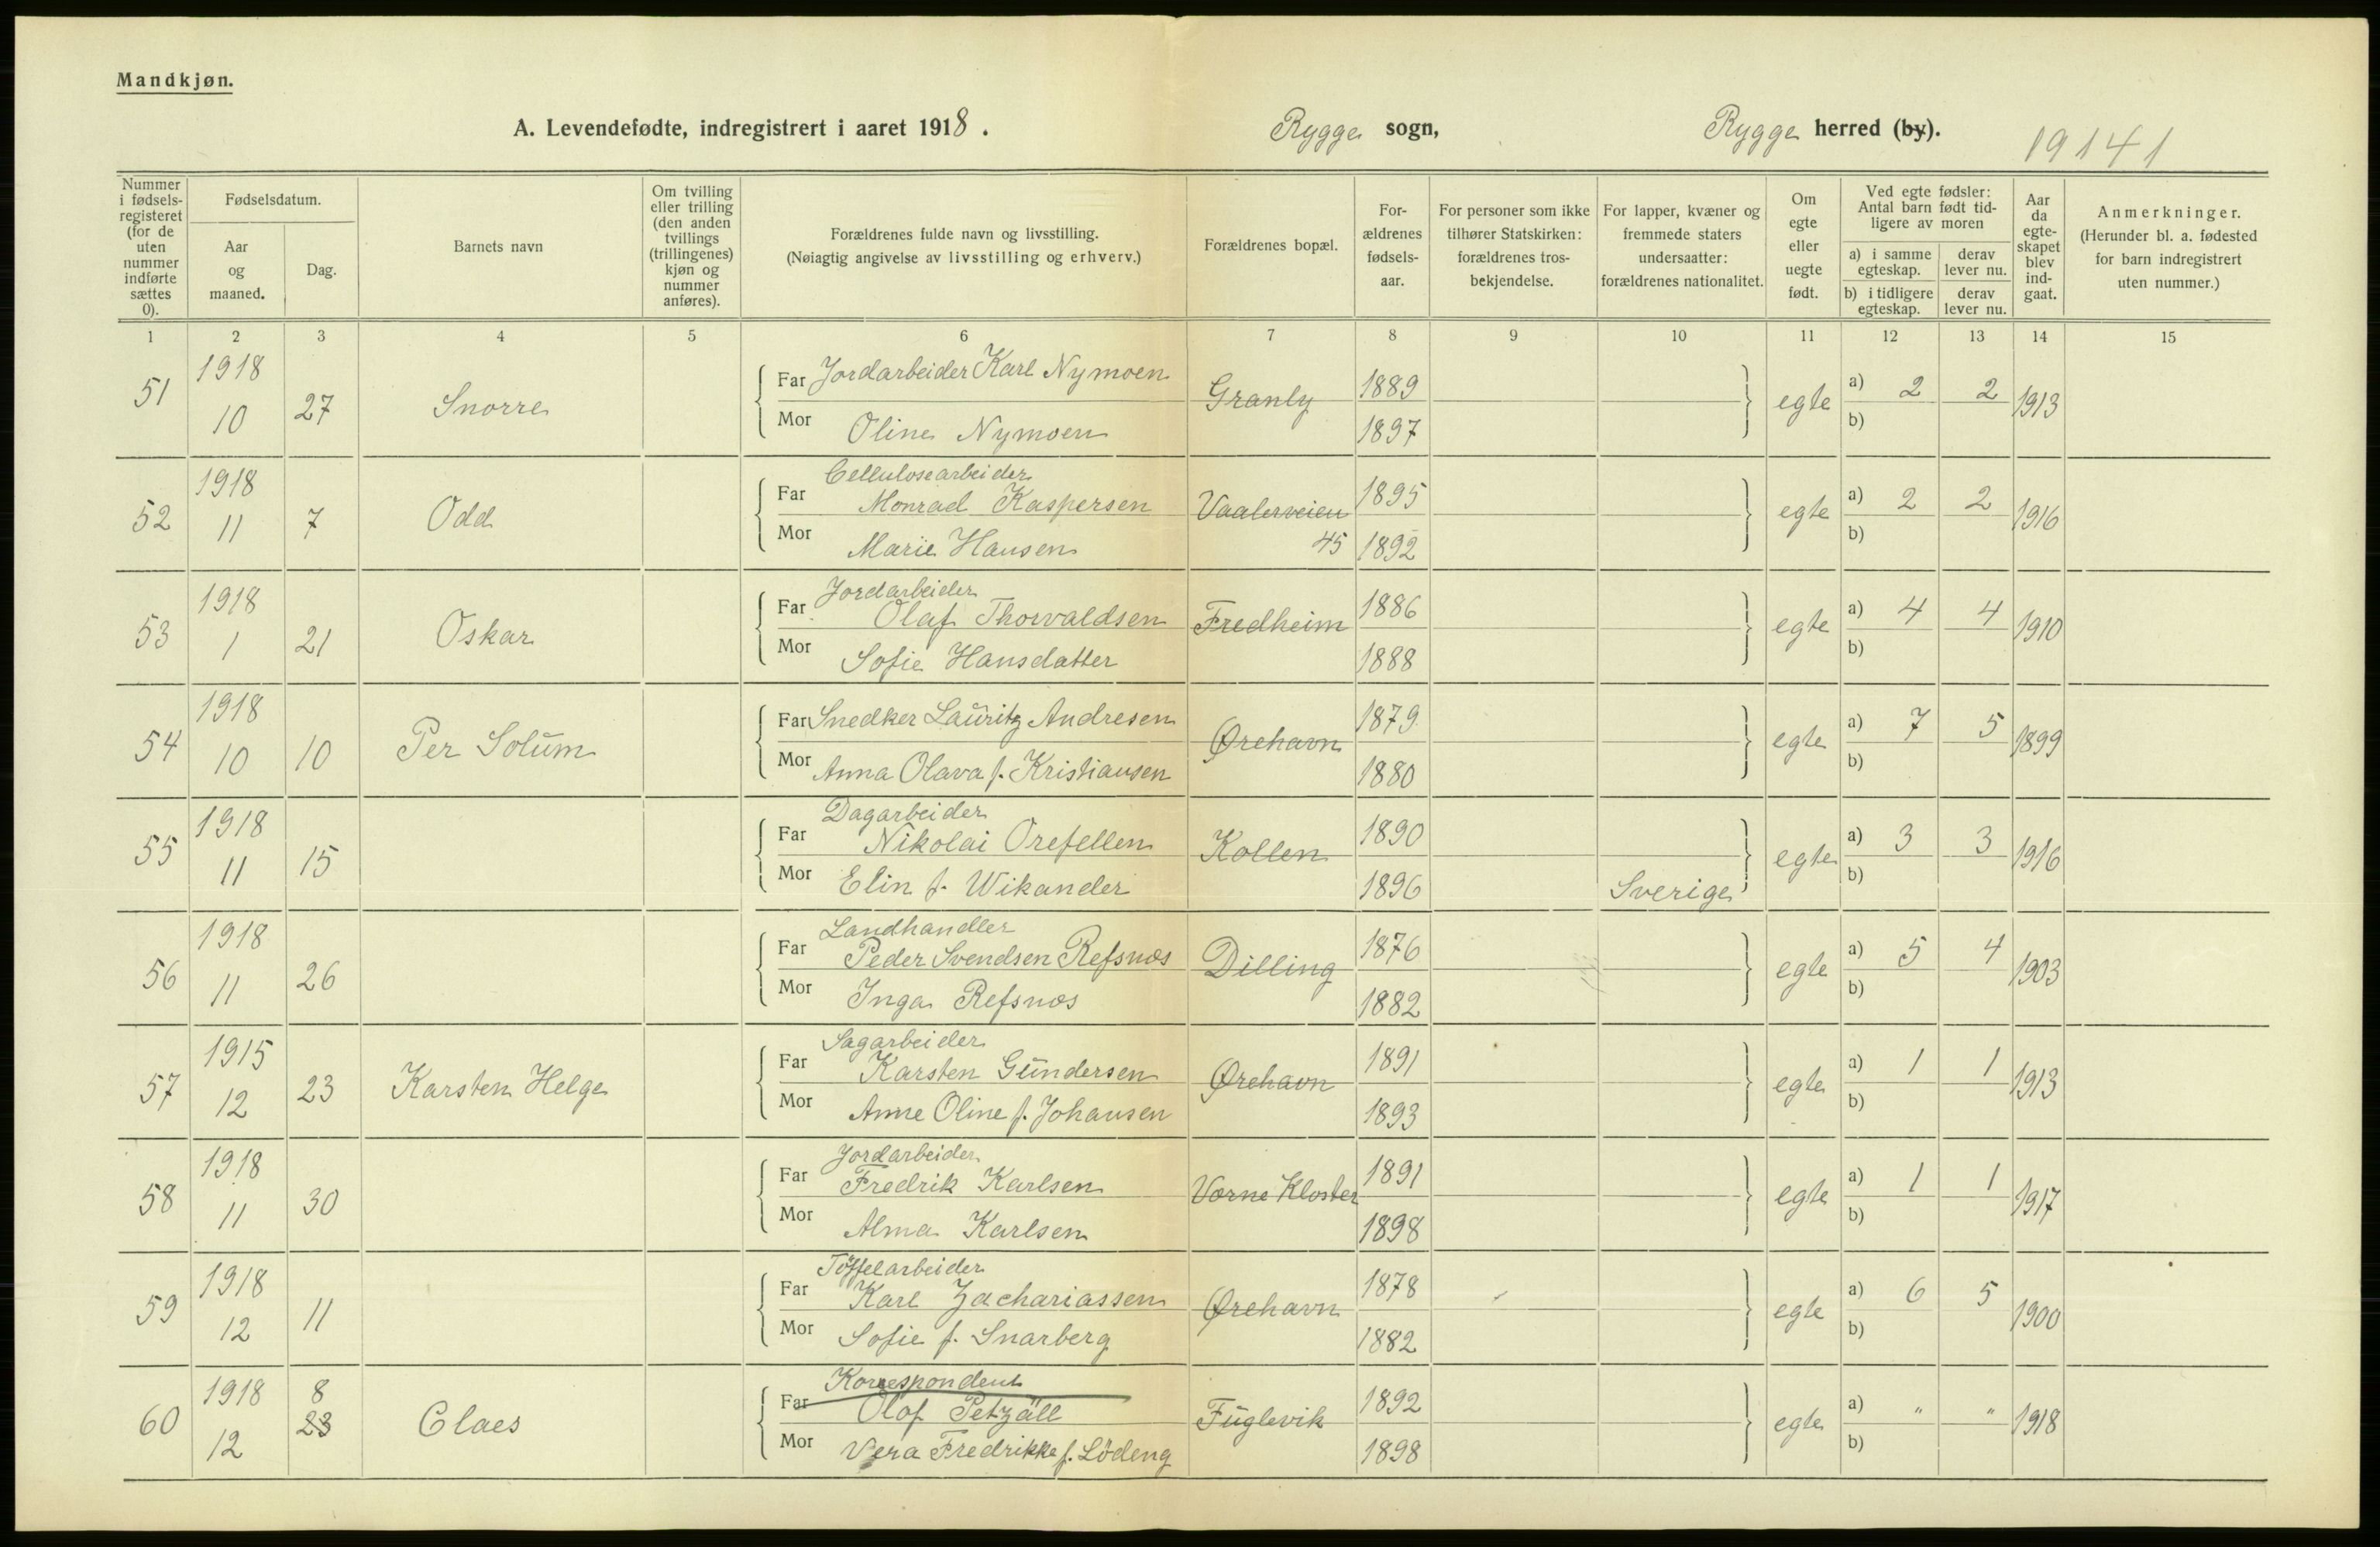 Mandkjøn.
A. Levendefødte, indregistrert i aaret 1918. Rygge sogn, Rygge herred (by).
19141
Nummer i fødsels-registeret (for de uten nummer indførte sættes 0).
Fødselsdatum.
Aar og maaned.
Dag.
Barnets navn
Om tvilling eller trilling (den anden tvillings (trillingenes) kjøn og nummer anføres).
Forældrenes fulde navn og livsstilling.
(Nøiagtig angivelse av livsstilling og erhverv.)
Forældrenes bopæl.
For-ældrenes fødsels-aar.
For personer som ikke tilhører Statskirken: forældrenes tros-bekjendelse.
For lapper, kvæner og fremmede staters undersaatter: forældrenes nationalitet.
Om egte eller uegte født.
Ved egte fødsler: Antal barn født tid-ligere av moren
a) i samme egteskap.
derav lever nu.
b) i tidligere egteskap.
derav lever nu.
Aar da egte-skapet blev ind-gaat.
Anmerkninger.
(Herunder bl. a. fødested for barn indregistrert uten nummer.)
1 2 3 4 5 6 7 8 9 10 11 12 13 14 15
51 1918 10 27 Snorre
Far Jordarbeider Karl Nymoen Granly 1889 egte a) 2 2 1913
Mor Oline Nymoen 1897 b)
52 1918 11 7 Odd
Cellulosearbeider
Far Monrad Kaspersen Vaalerveien 1895 egte a) 2 2 1916
Mor Marie Hansen 45 1892 b)
53 1918 1 21 Oskar
Jordarbeider
Far Olaf Thorvaldsen Fredheim 1886 egte a) 4 4 1910
Mor Sofie Hansdatter 1888 b)
54 1918 10 10 Per Solum
Far Snedker Lauritz Andresen Ørehavn 1879 egte a) 7 5 1899
Mor Anna Olava f. Kristiansen 1880 b)
55 1918 11 15
Dagarbeider
Far Nikolai Orefellen Kollen 1890 egte a) 3 3 1916
Mor Elin f. Wikander 1896 Sverige b)
56 1918 11 26
Landhandler
Far Peder Svendsen Refsnes Dilling 1876 egte a) 5 4 1903
Mor Inga Refsnes 1882 b)
57 1915 12 23 Karsten Helge
Sagarbeider
Far Karsten Gundersen Ørehavn 1891 egte a) 1 1 1913
Mor Anne Oline f. Johansen 1893 b)
58 1918 11 30
Jordarbeider
Far Fredrik Karlsen Værne Kloster 1891 egte a) 1 1 1917
Mor Alma Karlsen 1898 b)
59 1918 12 11
Töffelarbeider
Far Karl Zachariassen Ørehavn 1878 egte a) 6 5 1900
Mor Sofie f. Snarberg 1882 b)
60 1918 12 8 23 Claes
Korrespondent
Far Olof Petzäll Fuglevik 1892 egte a) " " 1918
Mor Vera Fredrikke f. Lödeng 1898 b)